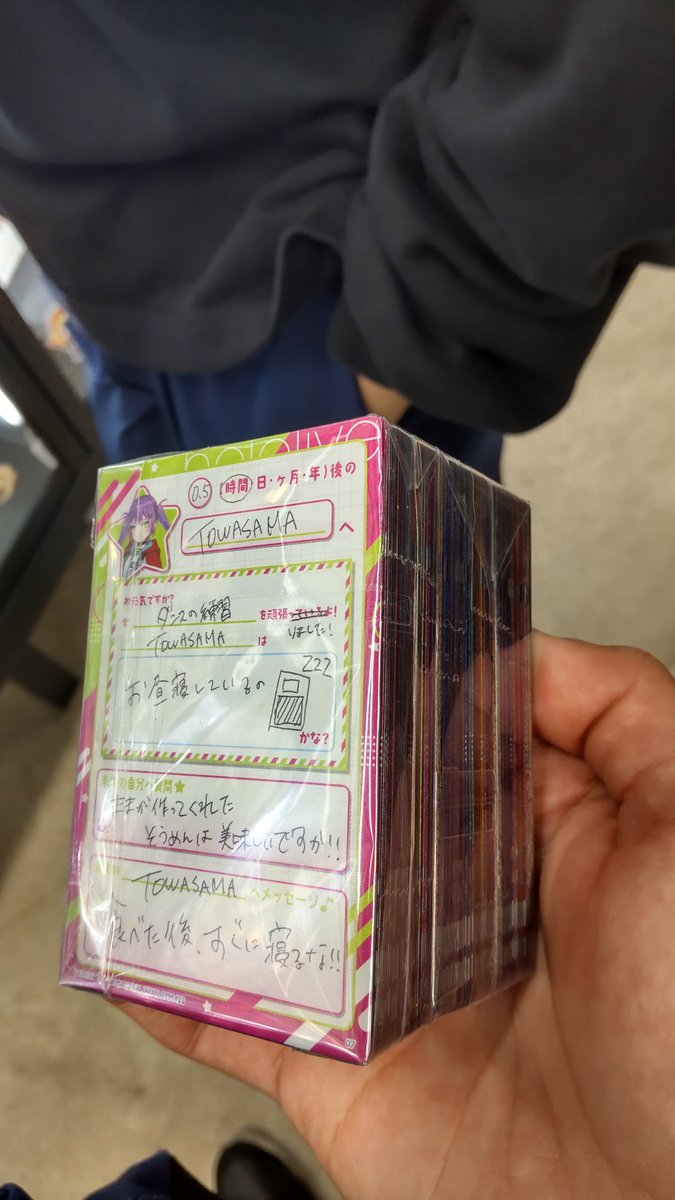 hololive
0.5 (時間・日・ケ月・年)後の
TOWASAMA へ
お元気ですか?
ダンスの練習 を頑張っているよ!
りました!
TOWASAMA は
お昼寝しているの
ZZZ
かな?
自分へ質問★
ままが作ってくれた
そうめんは美味しいですか!!
TOWASAMA へメッセージ♪
食べた後、すぐに寝るな!!
07